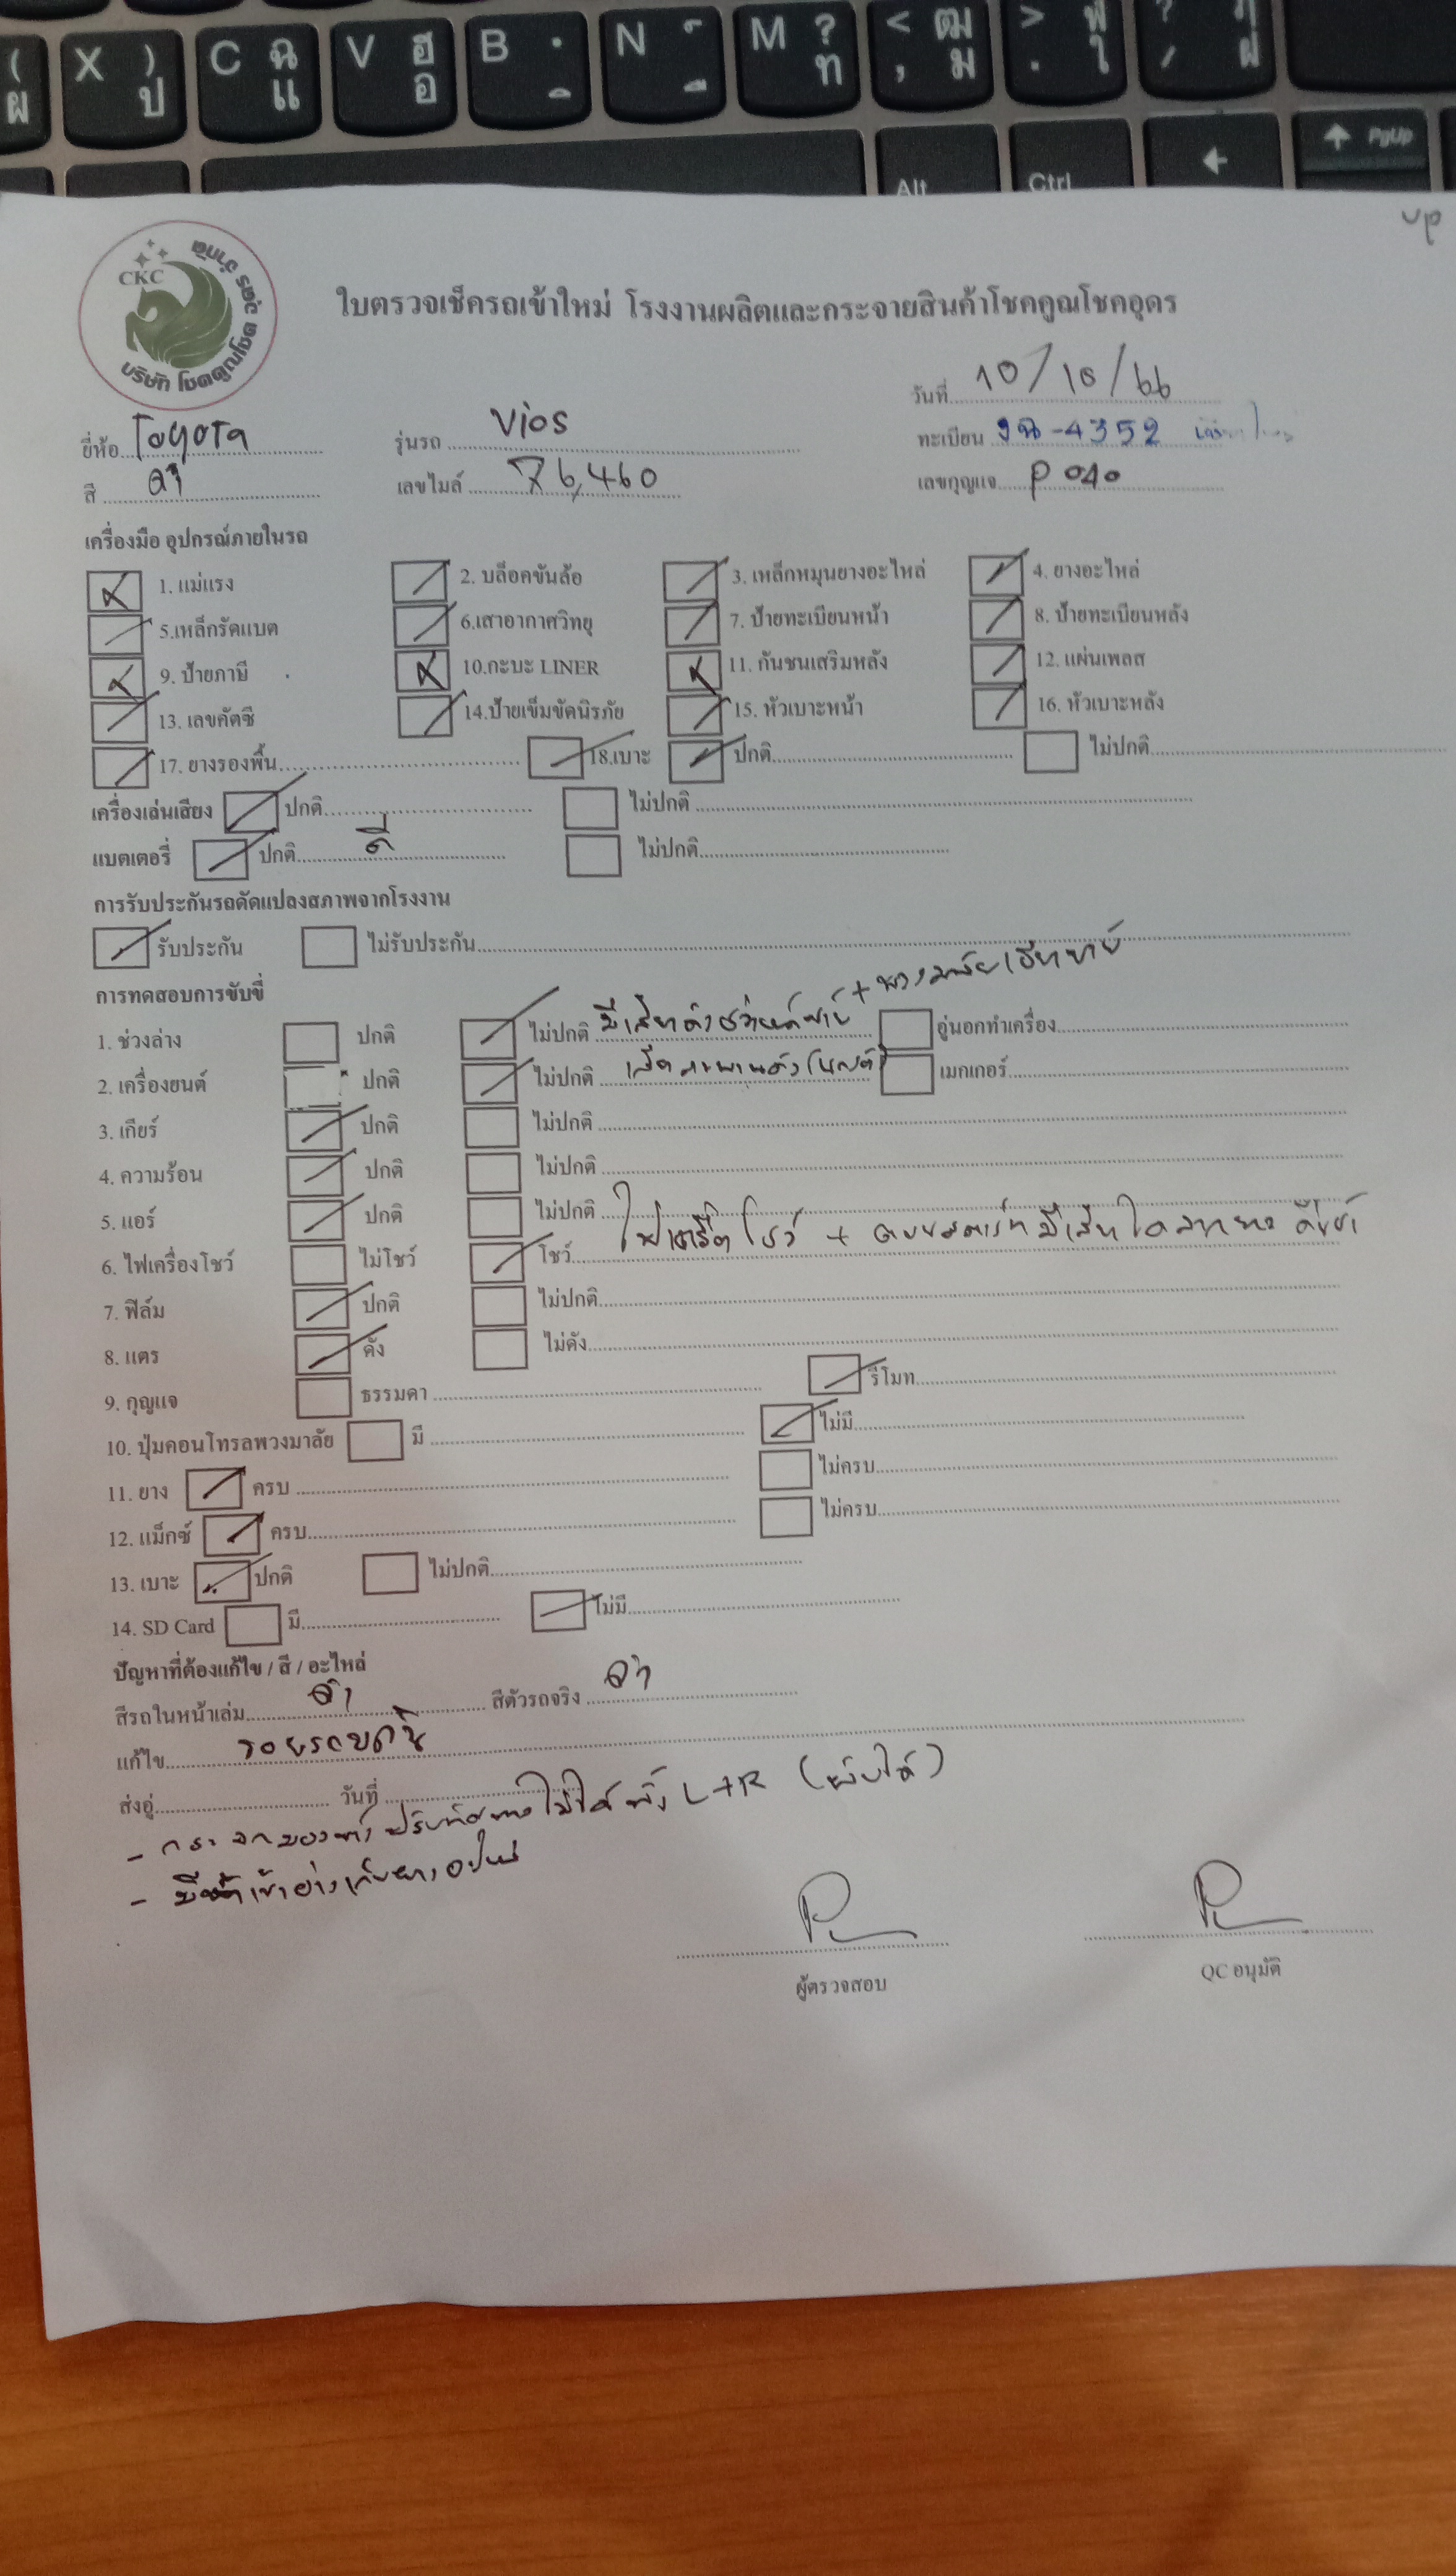 ( ผ X ) ป C ฉ แ V ฮ อ B ฺ ิ N ์ ื M ? ท < , ฒ ม > . ฬ ใ ? / ฦ ฝ
Alt Ctrl ← ↑ PgUp
up
CKC
บริษัท โชคคูณโชค อุดร จำกัด
ใบตรวจเช็ครถเข้าใหม่ โรงงานผลิตและกระจายสินค้าโชคคูณโชคอุดร
วันที่ 10/10/66
ยี่ห้อ Toyota รุ่นรถ vios ทะเบียน -4352
สี ดำ เลขไมล์ 76,460 เลขกุญแจ P 040
เครื่องมือ อุปกรณ์ภายในรถ
1. แม่แรง 2. บล็อคขันล้อ 3. เหล็กหมุนยางอะไหล่ 4. ยางอะไหล่
5.เหล็กรัดแบต 6.เสาอากาศวิทยุ 7. ป้ายทะเบียนหน้า 8. ป้ายทะเบียนหลัง
9. ป้ายภาษี 10.กะบะ LINER 11. กันชนเสริมหลัง 12. แผ่นเพลส
13. เลขคัตซี 14.ป้ายเข็มขัดนิรภัย 15. หัวเบาะหน้า 16. หัวเบาะหลัง
17. ยางรองพื้น 18.เบาะ ปกติ ไม่ปกติ
เครื่องเล่นเสียง ปกติ ไม่ปกติ
แบตเตอรี่ ปกติ ดี ไม่ปกติ
การรับประกันรถดัดแปลงสภาพจากโรงงาน
รับประกัน ไม่รับประกัน
การทดสอบการขับขี่
1. ช่วงล่าง ปกติ ไม่ปกติ มีเสียงดัง + พวงมาลัย อู่นอกทำเครื่อง
2. เครื่องยนต์ ปกติ ไม่ปกติ เมกเกอร์
3. เกียร์ ปกติ ไม่ปกติ
4. ความร้อน ปกติ ไม่ปกติ
5. แอร์ ปกติ ไม่ปกติ
6. ไฟเครื่องโชว์ ไม่โชว์ โชว์ โชว์ + มีเสียง
7. ฟิล์ม ปกติ ไม่ปกติ
8. แตร ดัง ไม่ดัง
9. กุญแจ ธรรมดา รีโมท
10. ปุ่มคอนโทรลพวงมาลัย มี ไม่มี
11. ยาง ครบ ไม่ครบ
12. แม็กซ์ ครบ ไม่ครบ
13. เบาะ ปกติ ไม่ปกติ
14. SD Card มี ไม่มี
ปัญหาที่ต้องแก้ไข / สี / อะไหล่
สีรถในหน้าเล่ม ดำ สีตัวรถจริง ดำ
แก้ไข รอยรอบคัน
ส่งอู่ วันที่
- กระจกมองข้างปรับทิศทางไม่ได้ทั้ง L+R (พับได้)
- มีน้ำเข้าอ่างเก็บยางอะไหล่
ผู้ตรวจสอบ QC อนุมัติ